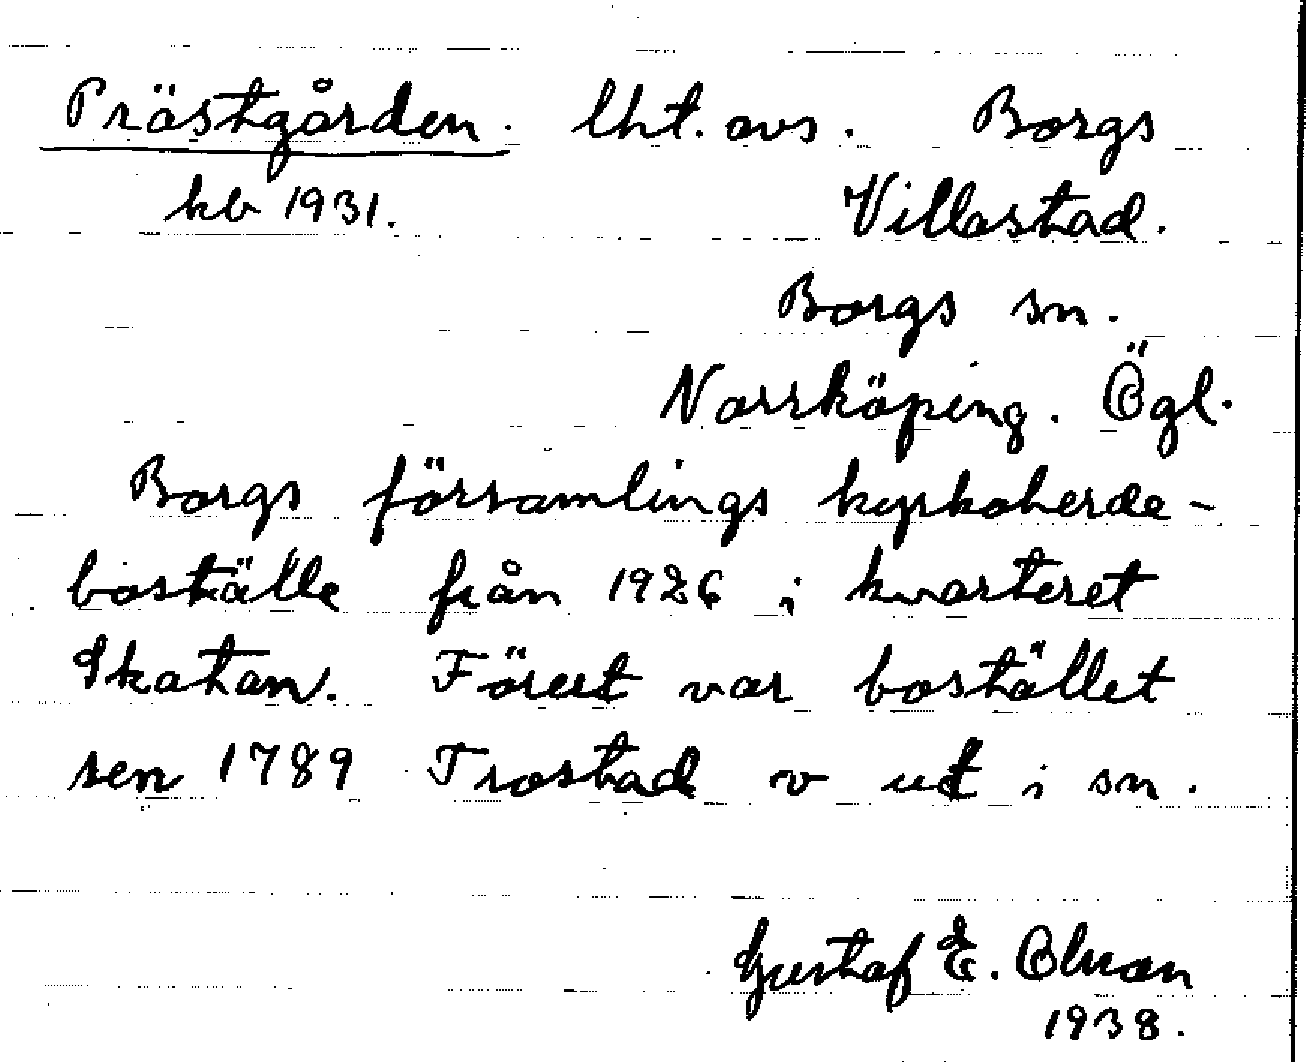 Prästgården. lht. avs. Borgs
kb 1931. Villastad.
Borgs sn.
Norrköping. Ögl.
Borgs församlings kyrkoherde-
boställe från 1926 i kvarteret
Skatan. Förut var bostället
sen 1789 Trostad v ut i sn.
Gustaf E. Olson
1938.